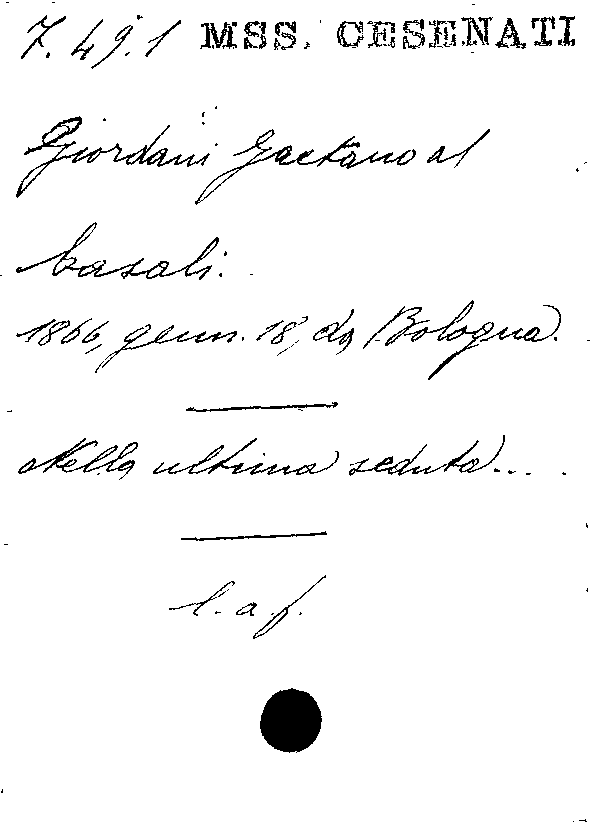 7.49.1 MSS. CESENATI
Giordani Gaetano al
Casali.
1866, genn. 18, da Bologna.
Nella ultima seduta....
l. a. f.